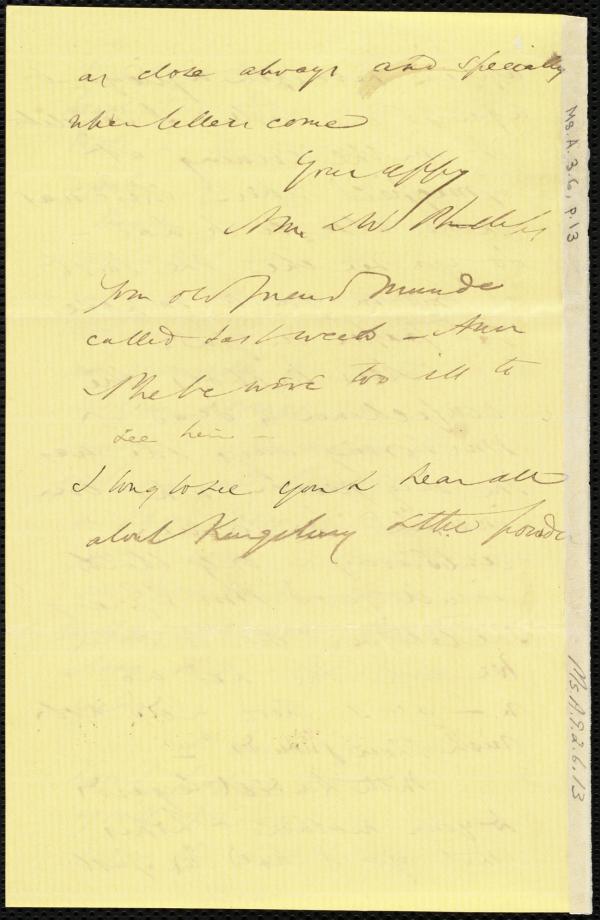 as close always and specially
when letters come
Your affly
Ann & W Phillips
Your old friend Munde
called last week – Ann
& Phebe were too ill to
see him –
I long to see you & hear all
about Kingsbury & the powder
Ms. A. 3.6, p.13